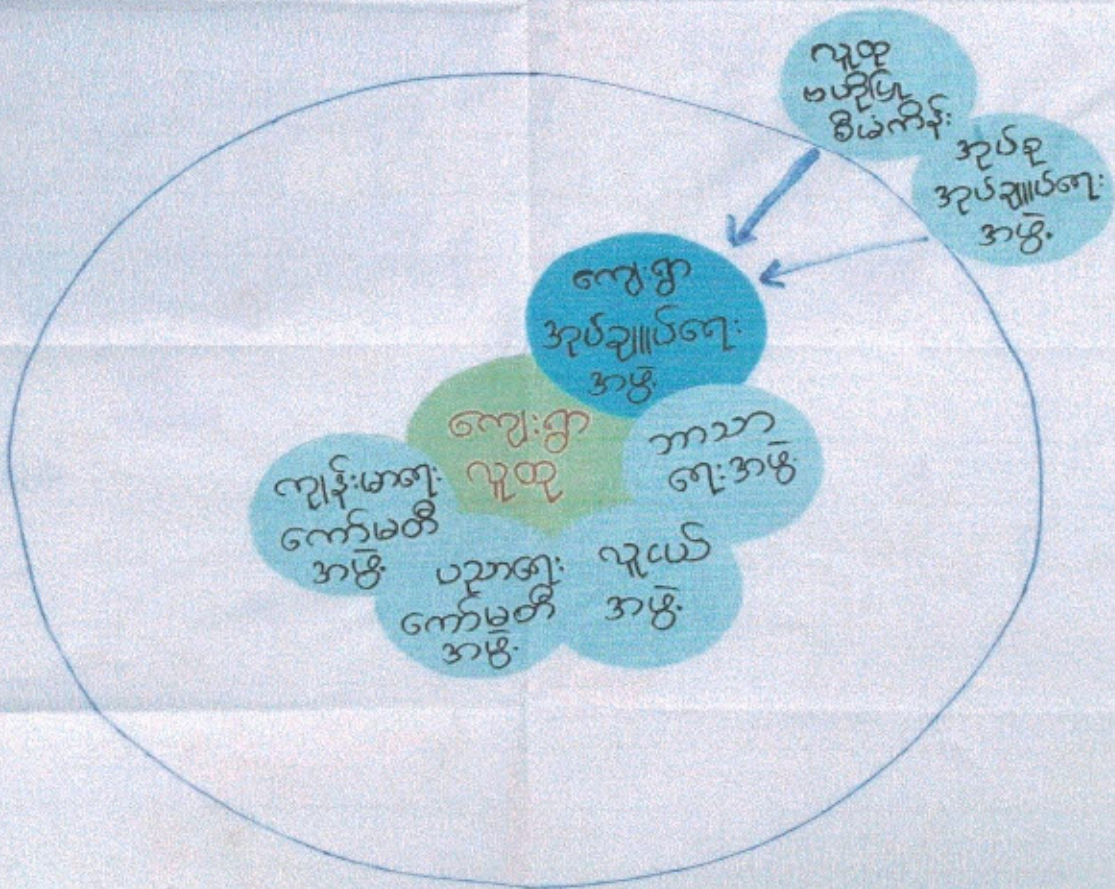 လူထု
ဗဟိုပြု
စီမံကိန်း
အုပ်စု
အုပ်ချုပ်ရေး
အဖွဲ့
ကျေးရွာ
အုပ်ချုပ်ရေး
အဖွဲ့
ကျေးရွာ
လူထု
ဘာသာ
ရေးအဖွဲ့
ကျန်းမာရေး
ကော်မတီ
အဖွဲ့
ပညာရေး
ကော်မတီ
အဖွဲ့
လူငယ်
အဖွဲ့